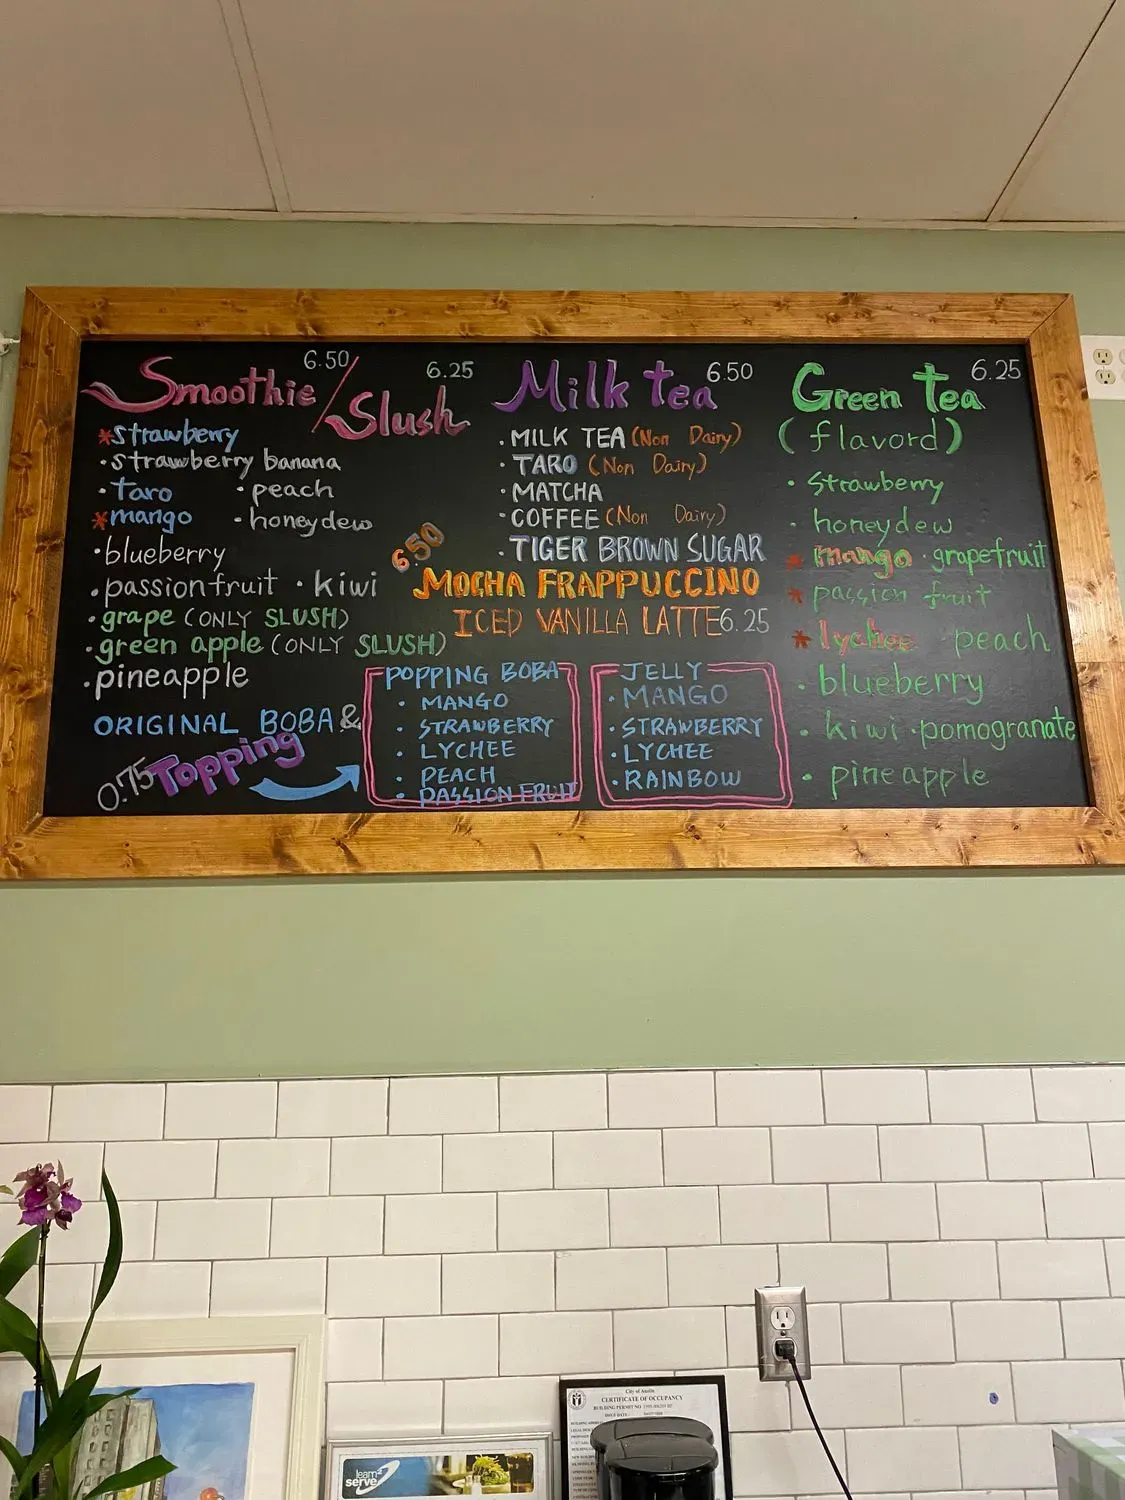 Smoothie 6.50 / Slush 6.25
*strawberry
·strawberry banana
·Taro ·peach
*mango ·honeydew
·blueberry
·passionfruit ·kiwi
·grape (ONLY SLUSH)
·green apple (ONLY SLUSH)
·pineapple
ORIGINAL BOBA &
0.75 Topping
Milk tea 6.50
·MILK TEA (Non Dairy)
·TARO (Non Dairy)
·MATCHA
·COFFEE (Non Dairy)
·TIGER BROWN SUGAR
6.50
MOCHA FRAPPUCCINO
ICED VANILLA LATTE 6.25
POPPING BOBA
·MANGO
·STRAWBERRY
·LYCHEE
·PEACH
·PASSION FRUIT
JELLY
·MANGO
·STRAWBERRY
·LYCHEE
·RAINBOW
Green tea 6.25
(flavord)
·strawberry
·honeydew
*mango ·grapefruit
*passion fruit
*lychee peach
·blueberry
·kiwi ·pomogranate
·pineapple
City of Austin
CERTIFICATE OF OCCUPANCY
BUILDING PERMIT NO
ISSUE DATE:
learn2
serve